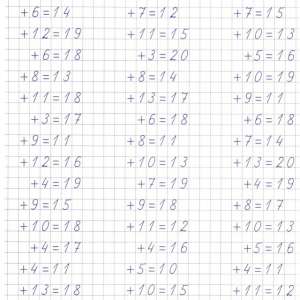 +6=14 +7=12 +7=15
+12=19 +11=15 +10=13
+6=18 +3=20 +5=16
+8=13 +8=14 +10=19
+11=18 +13=17 +9=11
+3=17 +6=18 +6=18
+9=11 +8=11 +7=14
+12=16 +10=13 +13=20
+4=19 +7=19 +4=19
+9=15 +9=18 +8=17
+10=18 +11=12 +10=13
+4=17 +4=16 +5=16
+4=11 +5=10 +4=11
+13=18 +10=15 +11=12